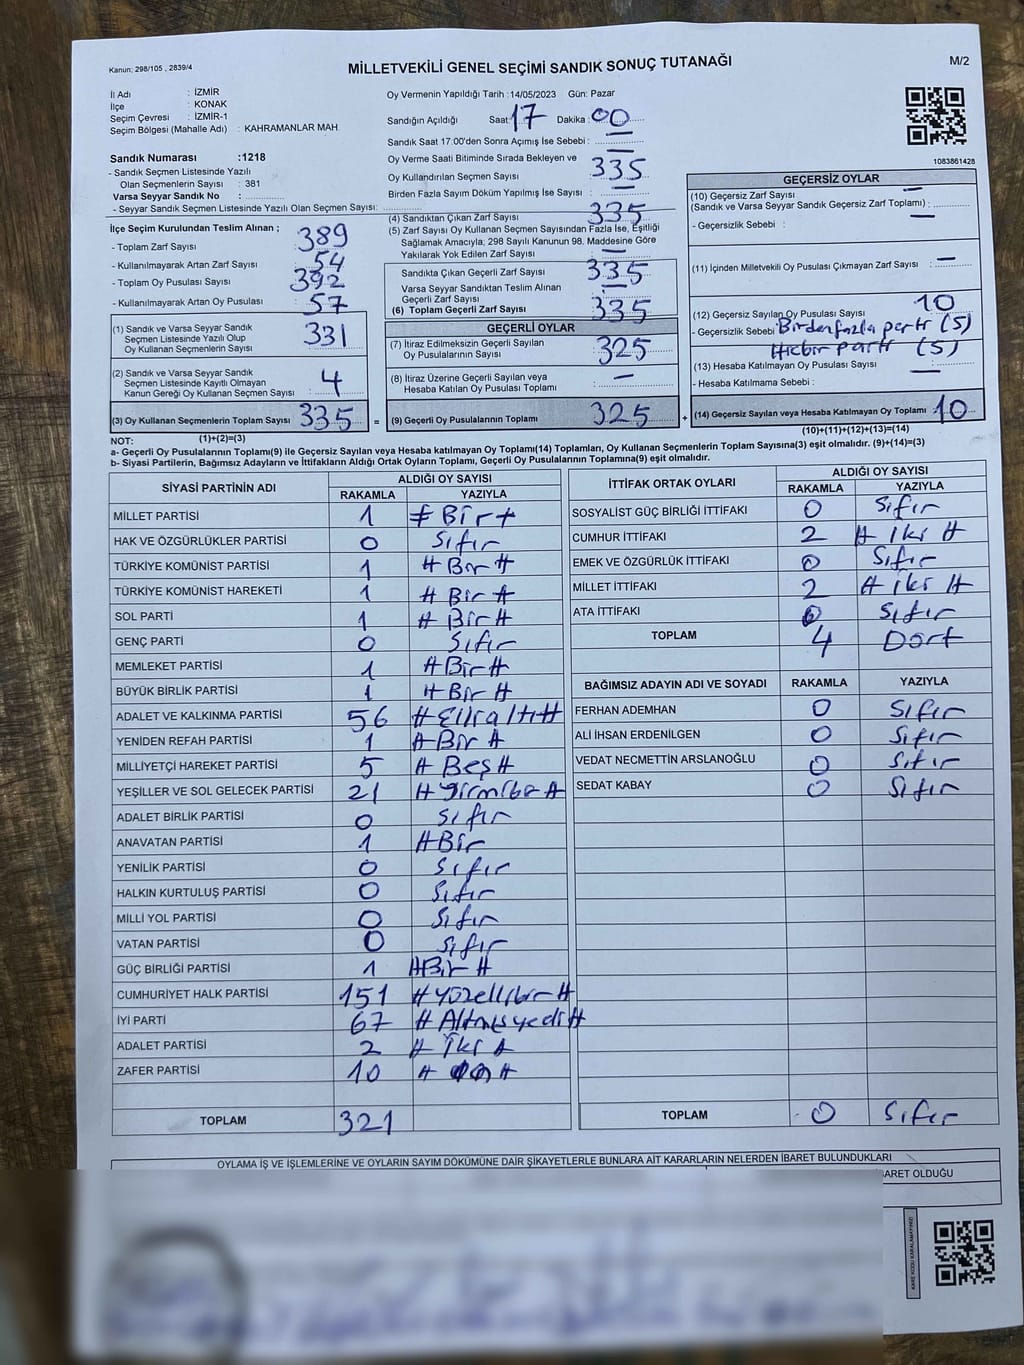 Kanun: 298/105 , 2839/4
MİLLETVEKİLİ GENEL SEÇİMİ SANDIK SONUÇ TUTANAĞI
M/2
İl Adı : İZMİR
İlçe : KONAK
Seçim Çevresi : İZMİR-1
Seçim Bölgesi (Mahalle Adı) : KAHRAMANLAR MAH.
Sandık Numarası :1218
- Sandık Seçmen Listesinde Yazılı
Olan Seçmenlerin Sayısı : 381
Varsa Seyyar Sandık No :
- Seyyar Sandık Seçmen Listesinde Yazılı Olan Seçmen Sayısı:
Oy Vermenin Yapıldığı Tarih :14/05/2023 Gün: Pazar
Sandığın Açıldığı Saat: 17 Dakika : 00
Sandık Saat 17.00'den Sonra Açımış İse Sebebi : —
Oy Verme Saati Bitiminde Sırada Bekleyen ve
Oy Kullandırılan Seçmen Sayısı : 335
Birden Fazla Sayım Döküm Yapılmış İse Sayısı : —
1083861428
İlçe Seçim Kurulundan Teslim Alınan ;
- Toplam Zarf Sayısı : 389
- Kullanılmayarak Artan Zarf Sayısı : 54
- Toplam Oy Pusulası Sayısı : 392
- Kullanılmayarak Artan Oy Pusulası : 57
(1) Sandık ve Varsa Seyyar Sandık
Seçmen Listesinde Yazılı Olup
Oy Kullanan Seçmenlerin Sayısı : 331
(2) Sandık ve Varsa Seyyar Sandık
Seçmen Listesinde Kayıtlı Olmayan
Kanun Gereği Oy Kullanan Seçmen Sayısı : 4
(3) Oy Kullanan Seçmenlerin Toplam Sayısı : 335
(1)+(2)=(3)
(4) Sandıktan Çıkan Zarf Sayısı : 335
(5) Zarf Sayısı Oy Kullanan Seçmen Sayısından Fazla İse, Eşitliği
Sağlamak Amacıyla; 298 Sayılı Kanunun 98. Maddesine Göre
Yakılarak Yok Edilen Zarf Sayısı : —
Sandıkta Çıkan Geçerli Zarf Sayısı : 335
Varsa Seyyar Sandıktan Teslim Alınan
Geçerli Zarf Sayısı : —
(6) Toplam Geçerli Zarf Sayısı : 335
GEÇERLİ OYLAR
(7) İtiraz Edilmeksizin Geçerli Sayılan
Oy Pusulalarının Sayısı : 325
(8) İtiraz Üzerine Geçerli Sayılan veya
Hesaba Katılan Oy Pusulası Toplamı : —
= (9) Geçerli Oy Pusulalarının Toplamı : 325
GEÇERSİZ OYLAR
(10) Geçersiz Zarf Sayısı —
(Sandık ve Varsa Seyyar Sandık Geçersiz Zarf Toplamı) :
- Geçersizlik Sebebi : —
(11) İçinden Milletvekili Oy Pusulası Çıkmayan Zarf Sayısı : —
(12) Geçersiz Sayılan Oy Pusulası Sayısı : 10
- Geçersizlik Sebebi : Birden fazla parti (5)
Hiçbir parti (5)
(13) Hesaba Katılmayan Oy Pusulası Sayısı : —
- Hesaba Katılmama Sebebi :
+ (14) Geçersiz Sayılan veya Hesaba Katılmayan Oy Toplamı : 10
(10)+(11)+(12)+(13)=(14)
NOT:
a- Geçerli Oy Pusulalarının Toplamı(9) ile Geçersiz Sayılan veya Hesaba katılmayan Oy Toplamı(14) Toplamları, Oy Kullanan Seçmenlerin Toplam Sayısına(3) eşit olmalıdır. (9)+(14)=(3)
b- Siyasi Partilerin, Bağımsız Adayların ve İttifakların Aldığı Ortak Oyların Toplamı, Geçerli Oy Pusulalarının Toplamına(9) eşit olmalıdır.
SİYASİ PARTİNİN ADI ALDIĞI OY SAYISI
RAKAMLA YAZIYLA
MİLLET PARTİSİ 1 # Bir #
HAK VE ÖZGÜRLÜKLER PARTİSİ 0 Sıfır
TÜRKİYE KOMÜNİST PARTİSİ 1 # Bir #
TÜRKİYE KOMÜNİST HAREKETİ 1 # Bir #
SOL PARTİ 1 # Bir #
GENÇ PARTİ 0 Sıfır
MEMLEKET PARTİSİ 1 # Bir #
BÜYÜK BİRLİK PARTİSİ 1 # Bir #
ADALET VE KALKINMA PARTİSİ 56 # Elli altı #
YENİDEN REFAH PARTİSİ 1 # Bir #
MİLLİYETÇİ HAREKET PARTİSİ 5 # Beş #
YEŞİLLER VE SOL GELECEK PARTİSİ 21 # Yirmibir #
ADALET BİRLİK PARTİSİ 0 Sıfır
ANAVATAN PARTİSİ 1 # Bir
YENİLİK PARTİSİ 0 Sıfır
HALKIN KURTULUŞ PARTİSİ 0 Sıfır
MİLLİ YOL PARTİSİ 0 Sıfır
VATAN PARTİSİ 0 Sıfır
GÜÇ BİRLİĞİ PARTİSİ 1 # Bir #
CUMHURİYET HALK PARTİSİ 151 # Yüzellibir #
İYİ PARTİ 67 # Altmışyedi #
ADALET PARTİSİ 2 # İki #
ZAFER PARTİSİ 10 # On #
TOPLAM 321
İTTİFAK ORTAK OYLARI ALDIĞI OY SAYISI
RAKAMLA YAZIYLA
SOSYALİST GÜÇ BİRLİĞİ İTTİFAKI 0 Sıfır
CUMHUR İTTİFAKI 2 # İki #
EMEK VE ÖZGÜRLÜK İTTİFAKI 0 Sıfır
MİLLET İTTİFAKI 2 # İki #
ATA İTTİFAKI 0 Sıfır
TOPLAM 4 Dört
BAĞIMSIZ ADAYIN ADI VE SOYADI RAKAMLA YAZIYLA
FERHAN ADEMHAN 0 Sıfır
ALİ İHSAN ERDENİLGEN 0 Sıfır
VEDAT NECMETTİN ARSLANOĞLU 0 Sıfır
SEDAT KABAY 0 Sıfır
TOPLAM 0 Sıfır
OYLAMA İŞ VE İŞLEMLERİNE VE OYLARIN SAYIM DÖKÜMÜNE DAİR ŞİKAYETLERLE BUNLARA AİT KARARLARIN NELERDEN İBARET BULUNDUKLARI
BARET OLDUĞU
KARE KODU KARALAMAYINIZ!